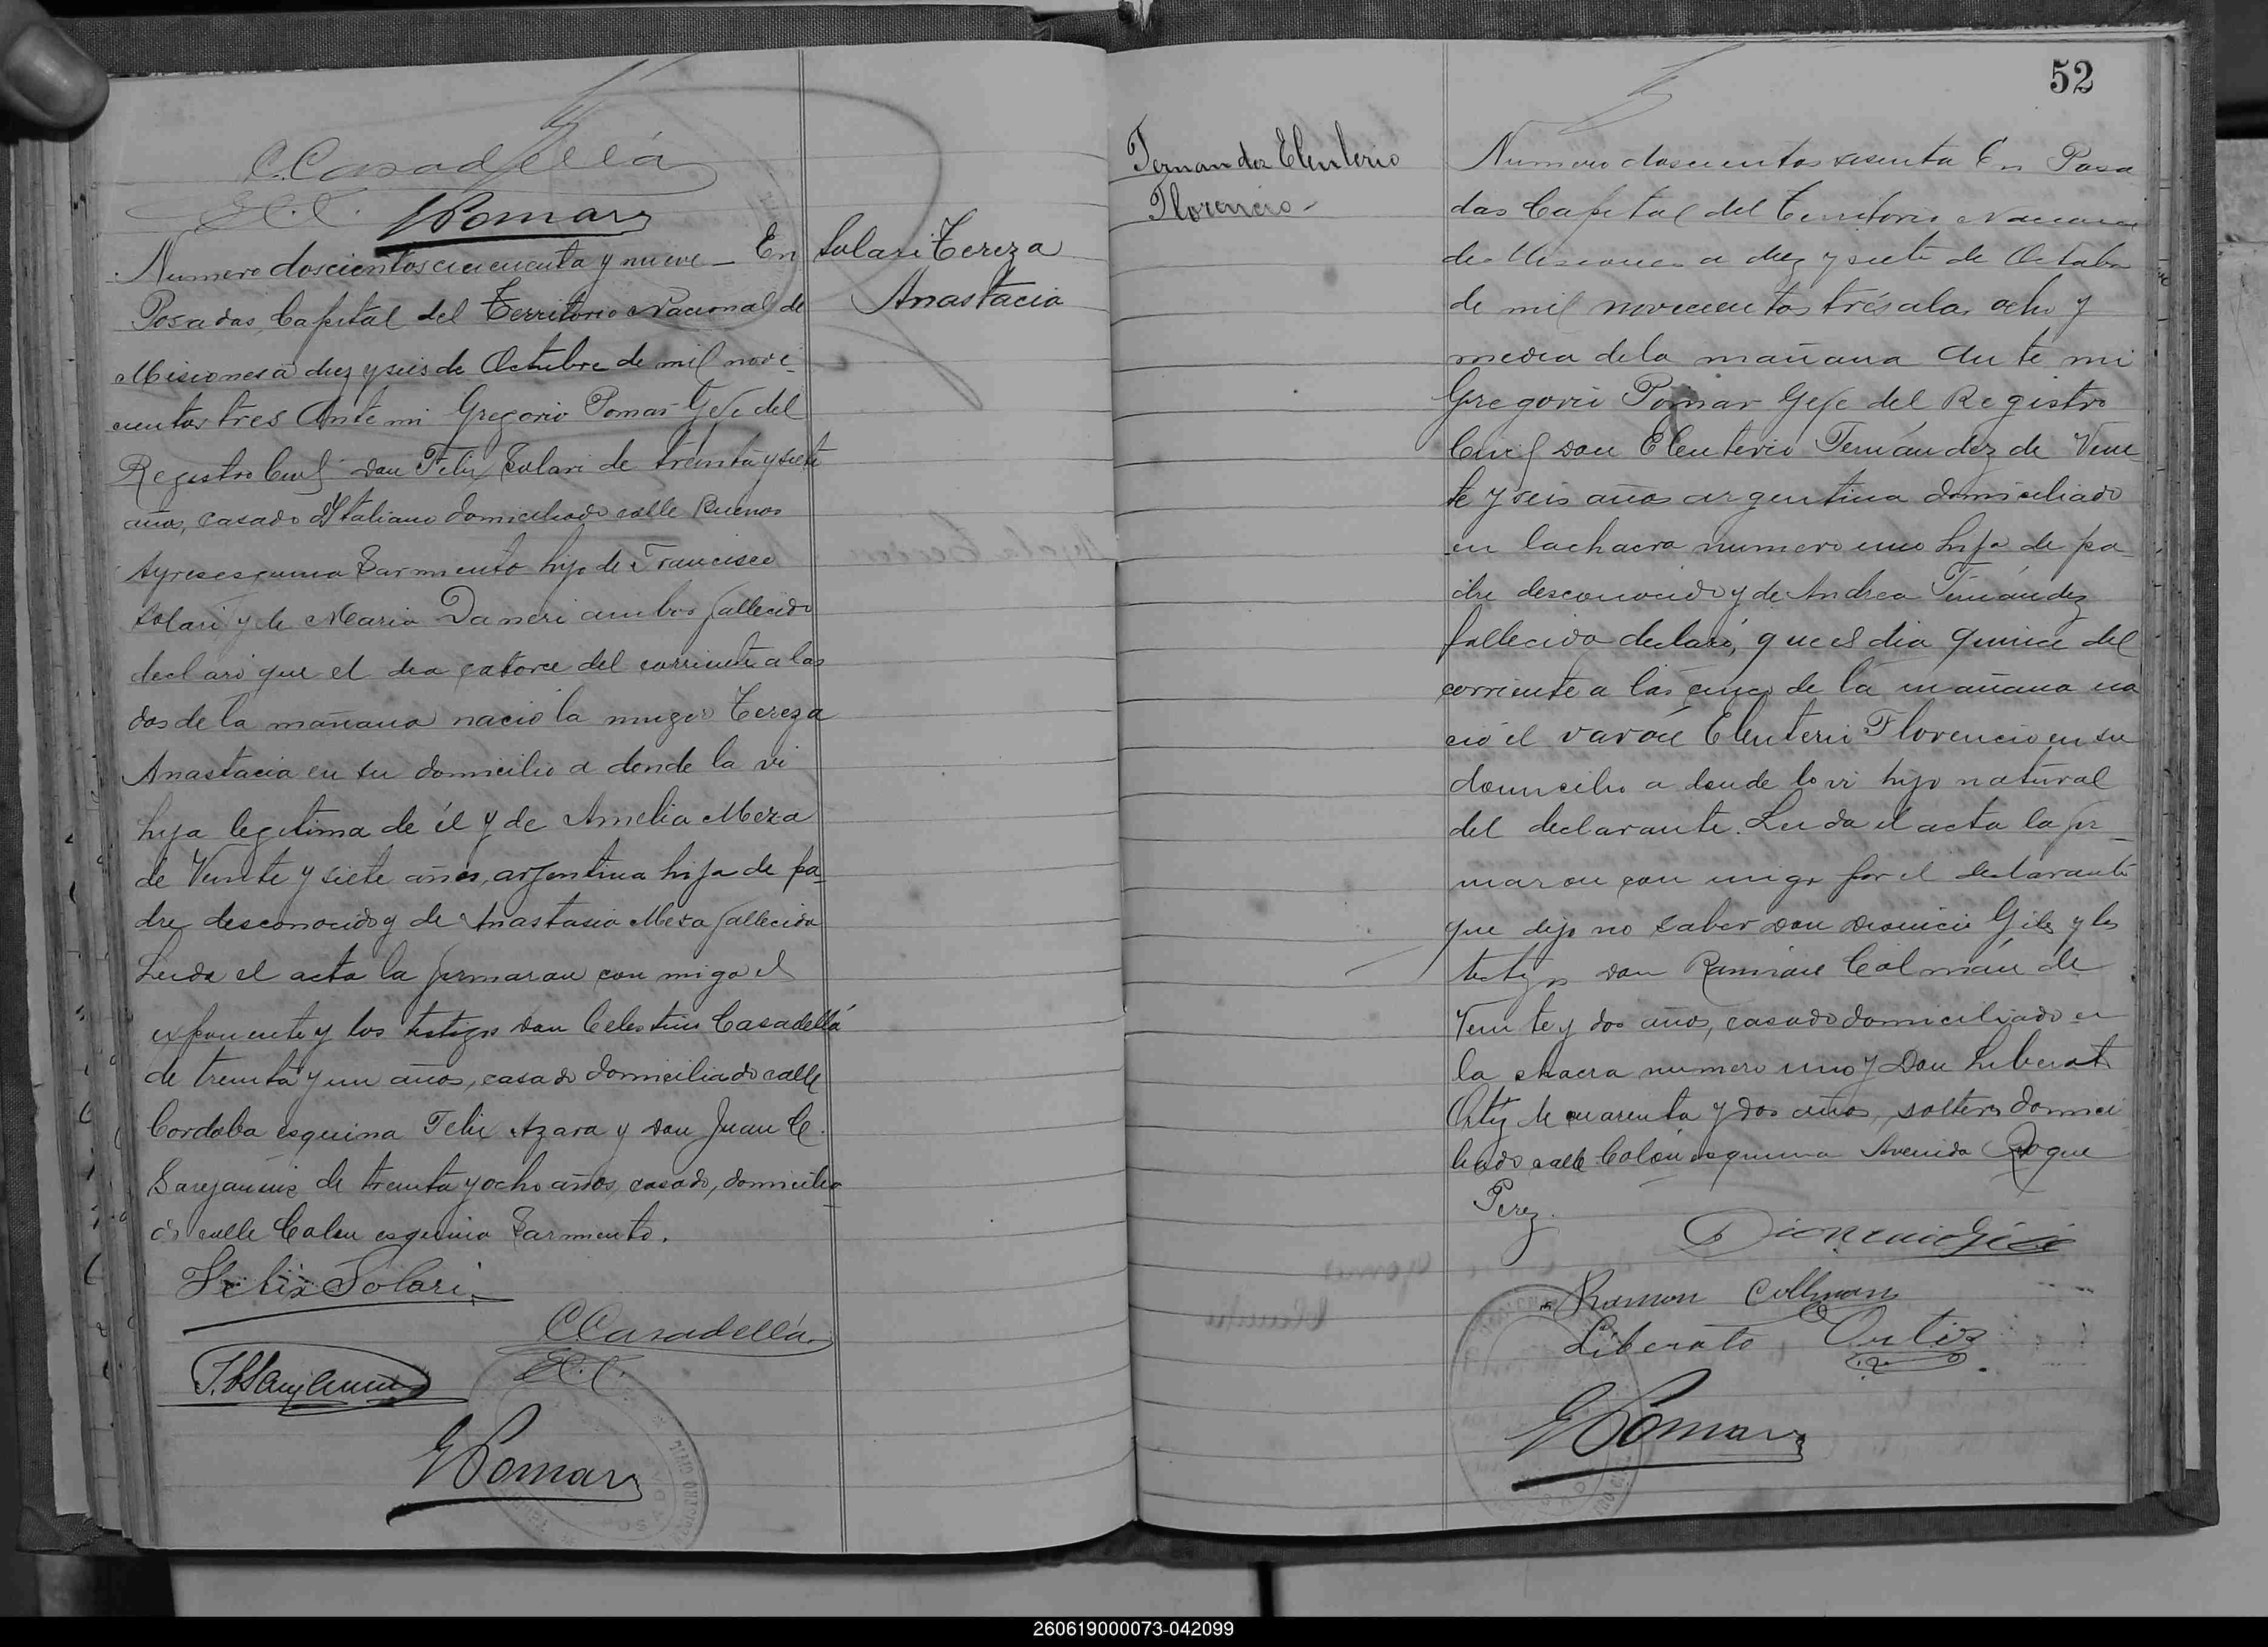 C. Casadellá
E.C.
G Pomar
Numero doscientos cincuenta y nueve — En
Posadas, Capital del Territorio Nacional de
Misiones a diez y seis de Octubre de mil nove-
cientos tres Ante mi Gregorio Pomar Gefe del
Registro Civil don Felix Solari de treinta y siete
años, casado Italiano domiciliado calle Buenos
Ayres esquina Sarmiento hijo de Francisco
Solari y de Maria Daneri ambos fallecido
declaró que el dia catorce del corriente a las
dos de la mañana nació la muger Tereza
Anastacia en su domicilio a donde la vi
hija legitima de él y de Amelia Meza
de Veinte y siete años, argentina hija de pa-
dre desconocido y de Anastasia Meza fallecida
Leida el acta la firmaron con migo el
exponente y los testigos don Celestino Casadellá
de treinta y un años, casado domiciliado calle
Cordoba esquina Felix Azara y don Juan C.
de treinta y ocho años, casado, domicilia-
do calle Colon esquina Sarmiento.
Felix Solari
C. Casadellá
E.C.
G Pomar
Solari Tereza
Anastacia
52
Fernandez Eleuterio
Florencio
Numero doscientos sesenta En Posa
das Capital del Territorio Nacional
de Misiones a diez y siete de Octubre
de mil novecientos trés a las ocho y
media de la mañana Ante mi
Gregorio Pomar Gefe del Registro
Civil don Eleuterio Fernández de Vein
te y seis años argentina domiciliado
en la chacra numero uno hijo de pa-
dre desconocido y de Andrea Fernández
fallecida declaró, que el dia quince del
corriente a las cinco de la mañana na
ció el varón Eleuterio Florencio en su
domicilio a donde lo vi hijo natural
del declarante. Leida el acta la fir-
maron con migo por el declarante
que dijo no saber don Dionicio Gils y los
testigos don Ramón Colmán de
Veinte y dos años, casado domiciliado en
la chacra numero uno y don Liberato
Ortiz de cuarenta y dos años, soltero domici
liado calle Colón esquina Avenida Roque
Perez.
Ramon Collman
Liberato Ortiz
G Pomar
260619000073-042099